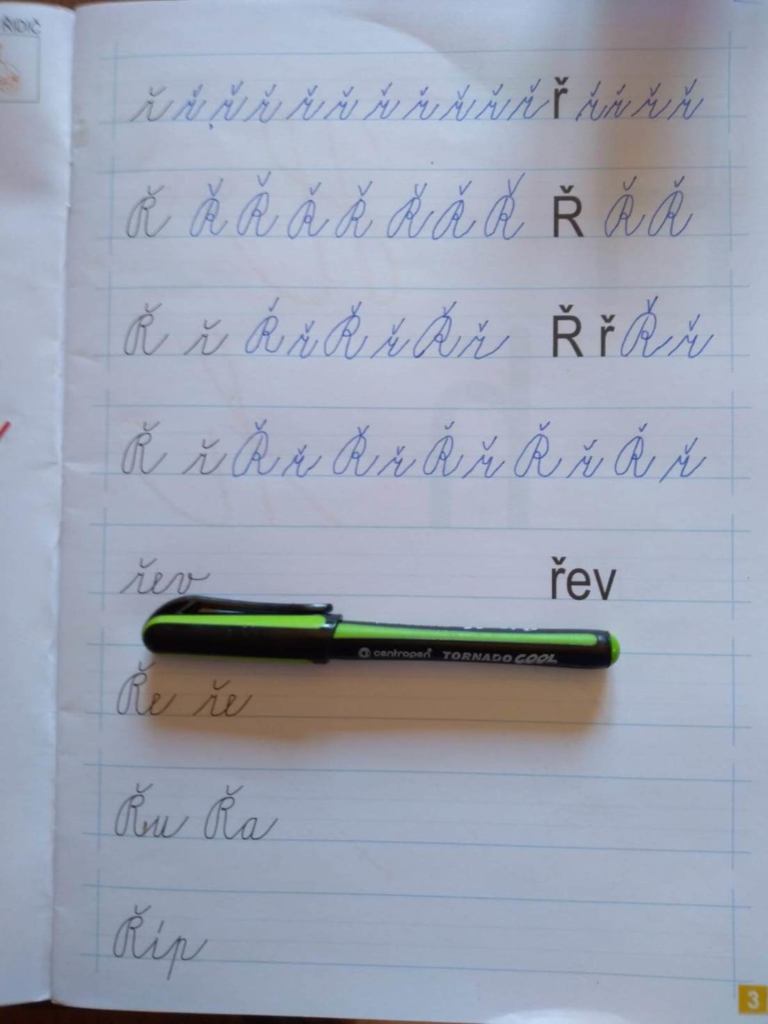 ŘIDIČ
ř ř ř ř ř ř ř ř ř ř ř ř ř ř ř ř
Ř Ř Ř Ř Ř Ř Ř Ř Ř Ř Ř
Ř ř Ř ř Ř ř Ř ř Ř ř Ř ř
Ř ř Ř ř Ř ř Ř ř Ř ř Ř ř
řev řev
centropen TORNADO COOL
Ře ře
Řu Řa
Říp
3